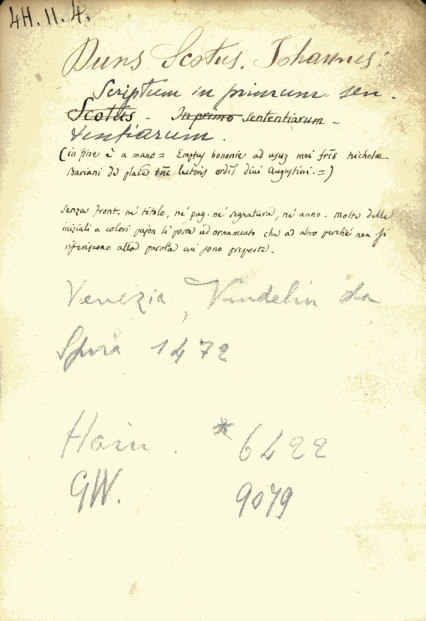 4H.II.4.
Duns Scotus, Johannes:
Scriptum in primum sen
Scotus - In primo sententiarum -
tentiarum.
(in fine è a mano = Emptus bononie ad usuz mei fr̃is Nicholae
Bariani de placẽ tñc lectoris ordĩs divi Augustini. =)
Senza front. né titolo, né pag. né segnatura, né anno. molte delle
iniziali a colori pajon li poste ad ornamento che ad altro perchè non si
riferiscono alla parola cui sono preposte.
Venezia, Vindelin da
Spira 1472
Hain . * 6422
GW. 9079